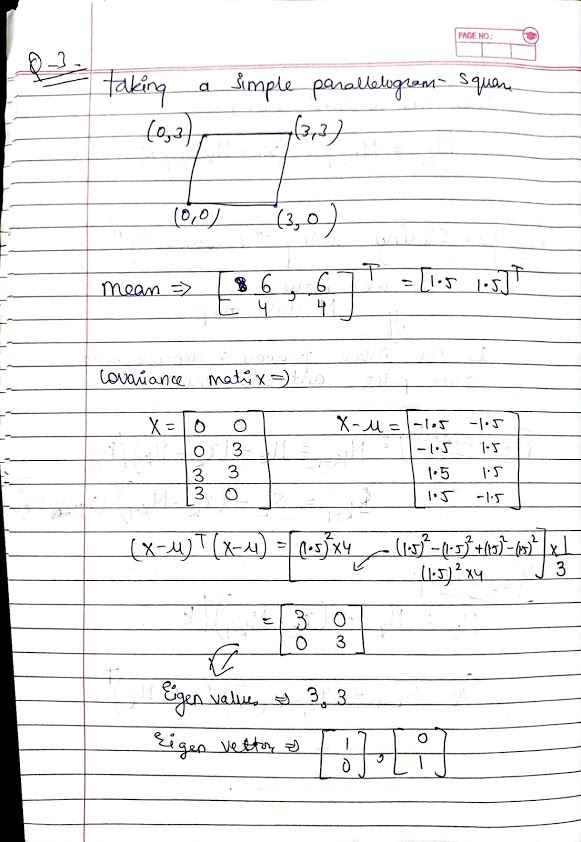 PAGE NO.:
Q-3-
Taking a simple parallelogram- square
(0,3) (3,3)
(0,0) (3,0)
mean ⇒ [6/4, 6/4]^T = [1.5 1.5]^T
Covariance matrix ⇒
X = [0 0; 0 3; 3 3; 3 0] X-μ = [-1.5 -1.5; -1.5 1.5; 1.5 1.5; 1.5 -1.5]
(X-μ)^T (X-μ) = [(1.5)²×4 (1.5)²-(1.5)²+(1.5)²-(1.5)²; (1.5)²×4] × 1/3
= [3 0; 0 3]
Eigen values ⇒ 3, 3
Eigen vector ⇒ [1; 0], [0; 1]